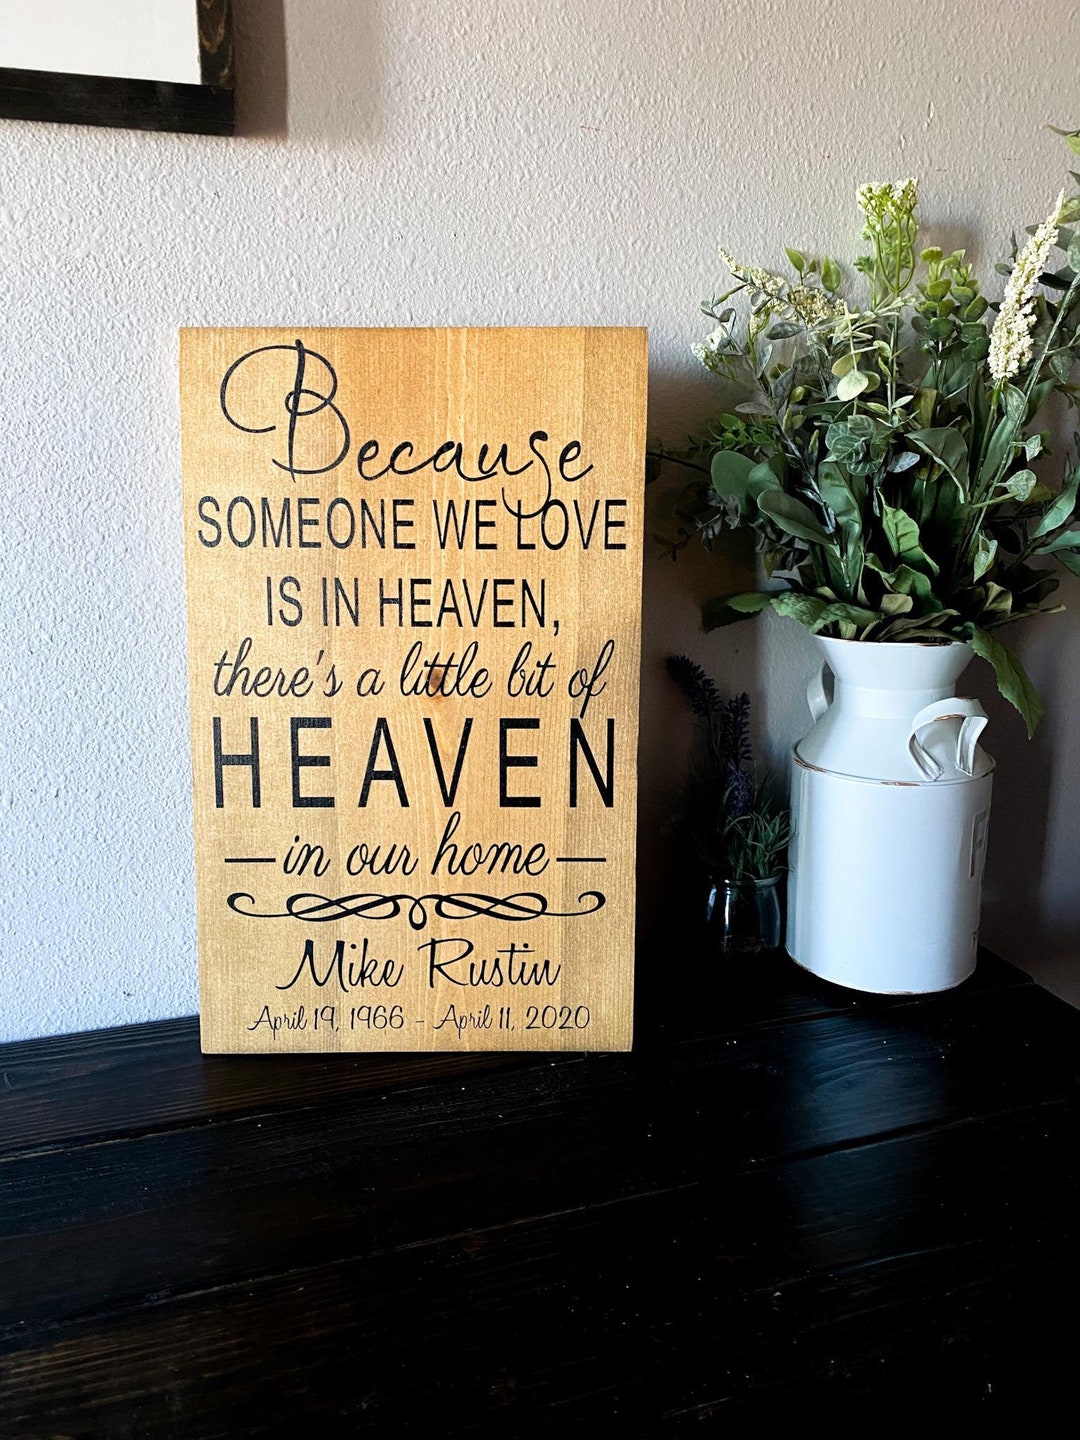 Because
SOMEONE WE LOVE
IS IN HEAVEN,
there's a little bit of
HEAVEN
in our home
Mike Rustin
April 19, 1966 - April 11, 2020